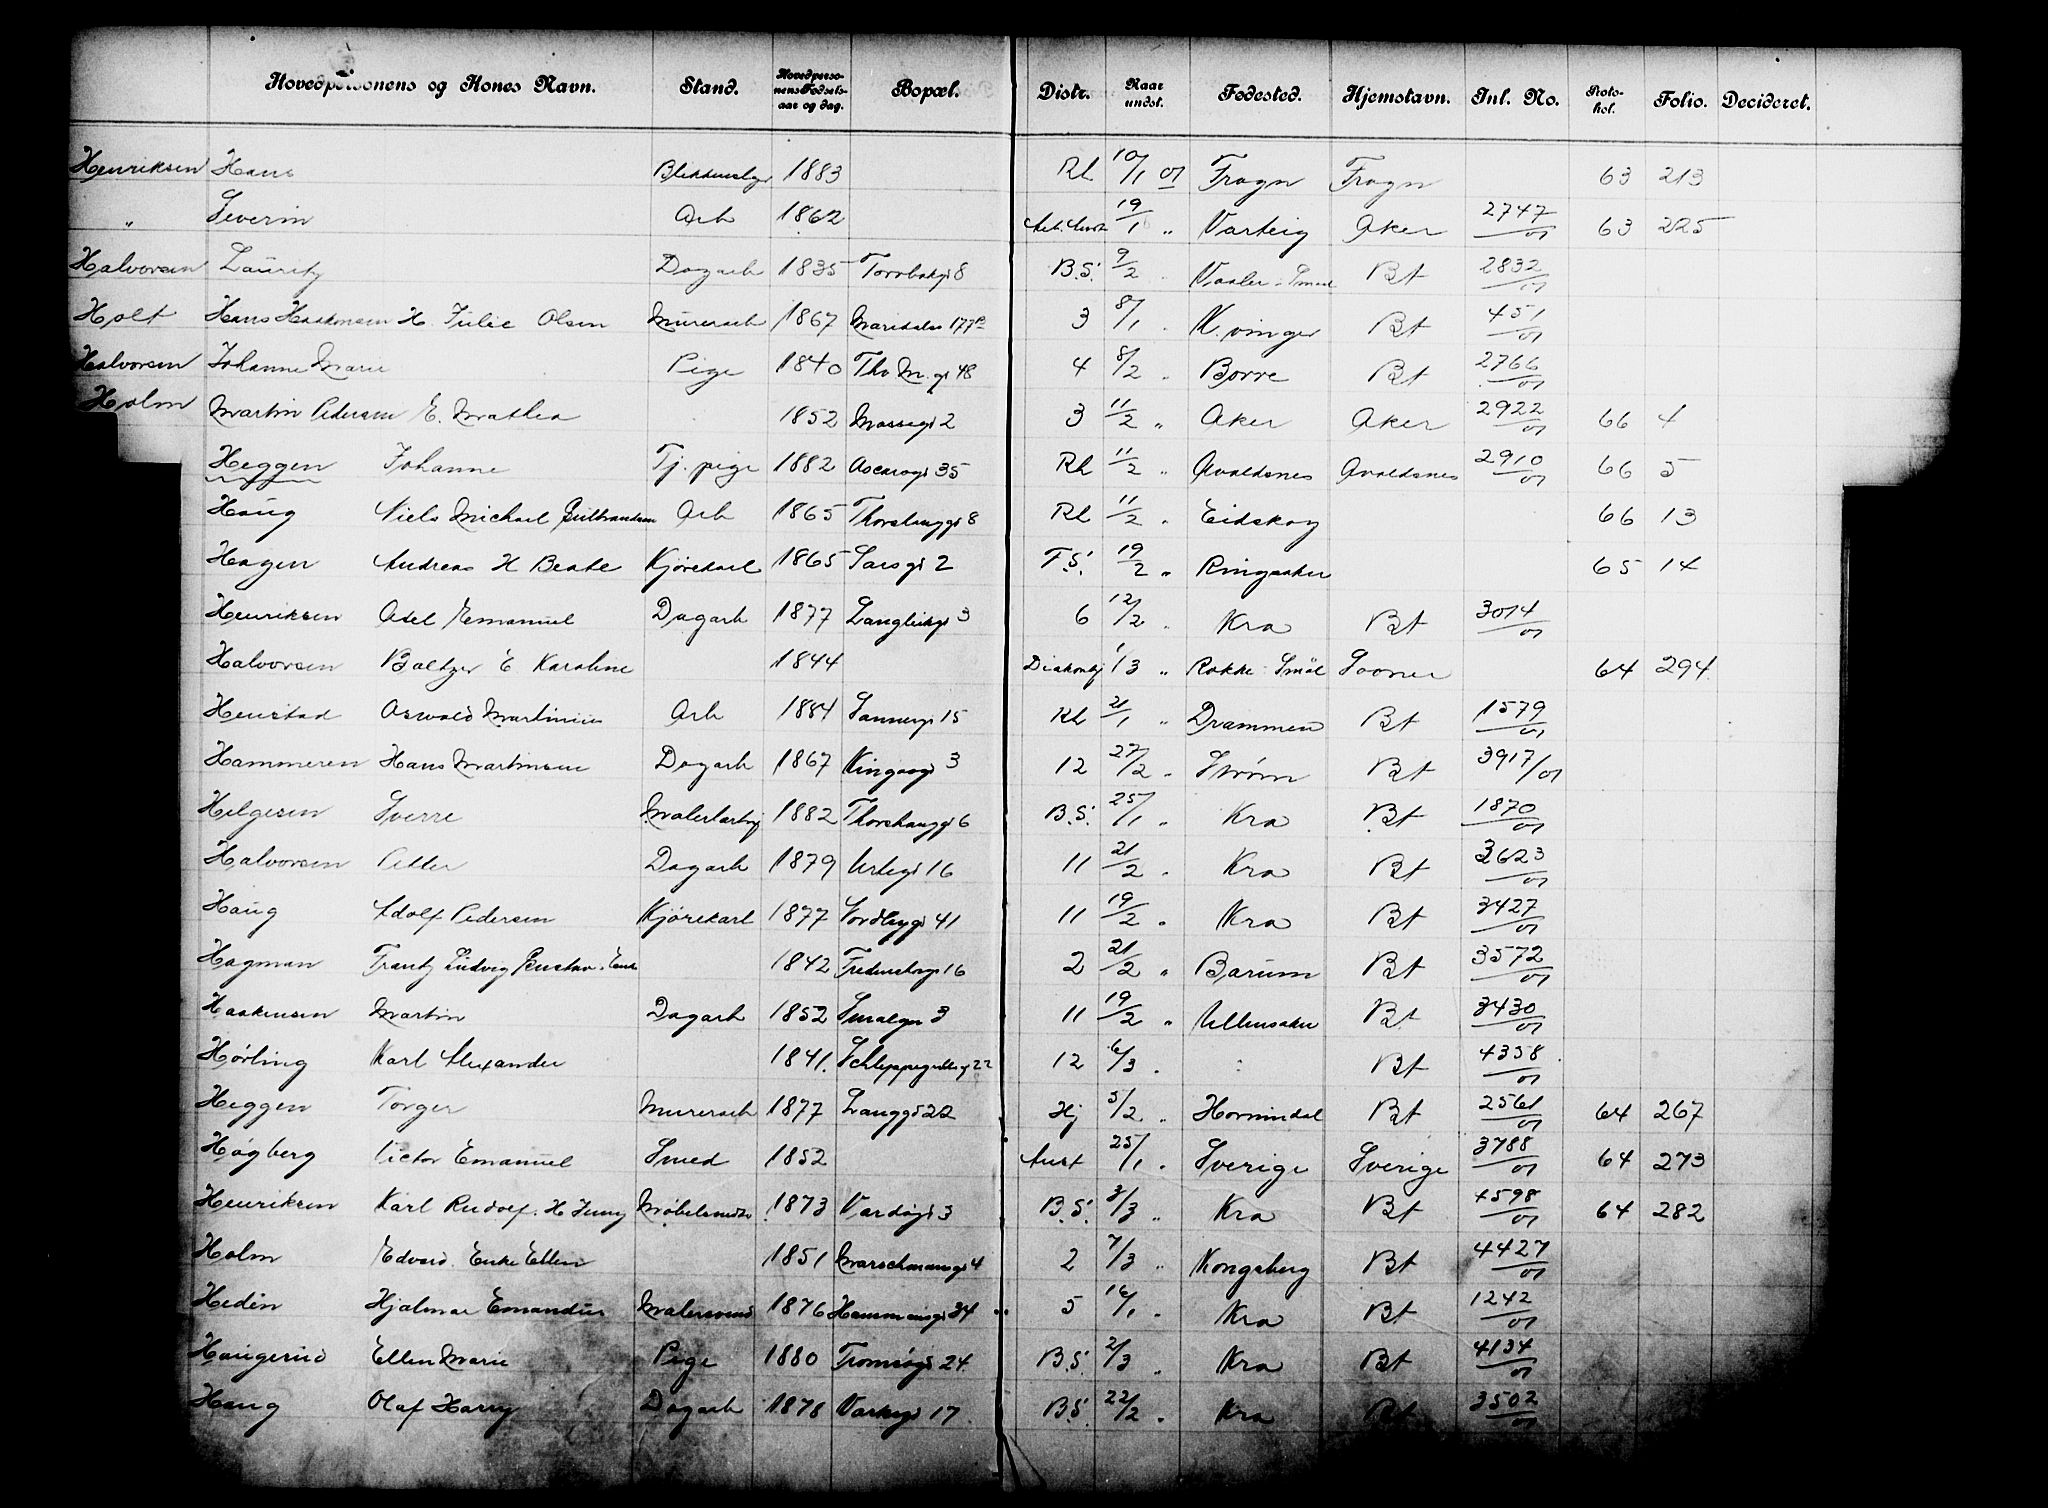 Hovedpersonens og Kones Navn. Stand. Hovedpersonens Fødselsaar og dag. Bopæl. Distr. Naar undst. Fødested. Hjemstavn. Inl. No. Protokol. Folio. Decideret.
Henriksen Hans 1883 Rh 10/1 01 Frogn Frogn 63 213
" Severin Arb 1862 19/1 " Varteig Aker 2747/01 63 225
Halvorsen Lauritz Dagarb 1835 Torvbakgd 8 B.S. 9/2 " Vaaler i Smaal Bt 2832/01
Holt Hans Haakensen H. Julie Olsen Murerarb 1867 Maridalsv 177 3 8/1 " K.vinger Bt 451/01
Halvorsen Johanne Marie Pige 1840 Th. M. gd 48 4 8/2 " Borre Bt 2766/01
Holm Martin Pedersen E. Mathea 1852 Mossegd 2 3 11/2 " Aker Aker 2922/01 66 4
Heggen Johanne Tj. pige 1882 Oscarsgd 35 Rh 11/2 " Avaldsnes Avaldsnes 2910/01 66 5
Haug Niels Michael Gulbrandsen Arb 1865 Thorshauggd 8 Rh 11/2 " Eidskog 66 13
Hagen Andreas H Beate Kjørekarl 1865 Sarsgd 2 F.S. 19/2 " Ringsaker 65 14
Henriksen Axel Emanuel Dagarb 1877 Langleikgd 3 6 12/2 " Kra Bt 3014/01
Halvorsen Baltzer E Karoline 1844 Diakonhj 1/3 " Rakke. Smål Sooner 64 294
Henstad Oswald Martinius Arb 1884 Sannergd 15 Rh 21/1 " Drammen Bt 1579/01
Hammeren Hans Martinsen Dagarb 1867 Kingosgd 3 12 27/2 " Strøm Bt 3917/01
Helgesen Sverre Malerlærling 1882 Thorshauggd 6 B.S. 25/1 " Kra Bt 1870/01
Halvorsen Petter Dagarb 1879 Urtegd 16 11 21/2 " Kra Bt 3623/01
Haug Adolf Pedersen Kjørekarl 1877 Nordbygd 41 11 19/2 " Kra Bt 3427/01
Hagman Frantz Ludvig Gustav. Enke 1842 Fredensborgv 16 2 21/2 " Bærum Bt 3572/01
Haakensen Martin Dagarb 1852 Smalgn 3 11 19/2 " Ullensaker Bt 3430/01
Hørling Karl Alexander 1841. Schleppegrellsg 22 12 6/3 " Bt 4358/01
Heggen Torger Murerarb 1877 Langgd 22 Hj 5/2 " Hornindal Bt 2561/01 64 267
Høgberg Victor Emanuel Smed 1852 Anst 25/1 " Sverige Sverige 3788/01 64 273
Henriksen Karl Rudolf. H Jenny Møbelsnedk 1873 Vardøgd 3 B.S. 3/3 " Kra Bt 4598/01 64 282
Holm Edvard. Enke Ellen 1851 Marschmansgd 4 2 7/3 " Kongsberg Bt 4427/01
Hedèn Hjalmar Emandus Malersvend 1876 Hammersgd 34 5 16/1 " Kra Bt 1242/01
Haugerud Ellen Marie Pige 1880 Tromsøgd 24 B.S. 2/3 " Kra Bt 4134/01
Haug Olaf Harry Dagarb 1878 Vackesgd 17 B.S. 22/2 " Kra Bt 3502/01